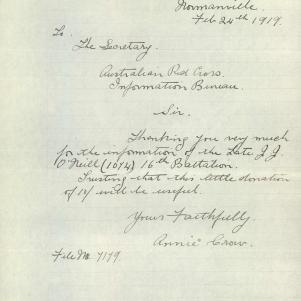 Normanville.
Feb 24th 1919.
To.
The Secretary.
Australian Red Cross.
Information Bureau.
Sir.
Thanking you very much
for the information of the Late J.J.
O'Neill (1674) 16th Battation.
Trusting that this little donation
of 1/- will be useful.
Yours Faithfully.
Annie Crow.
File No 7179.